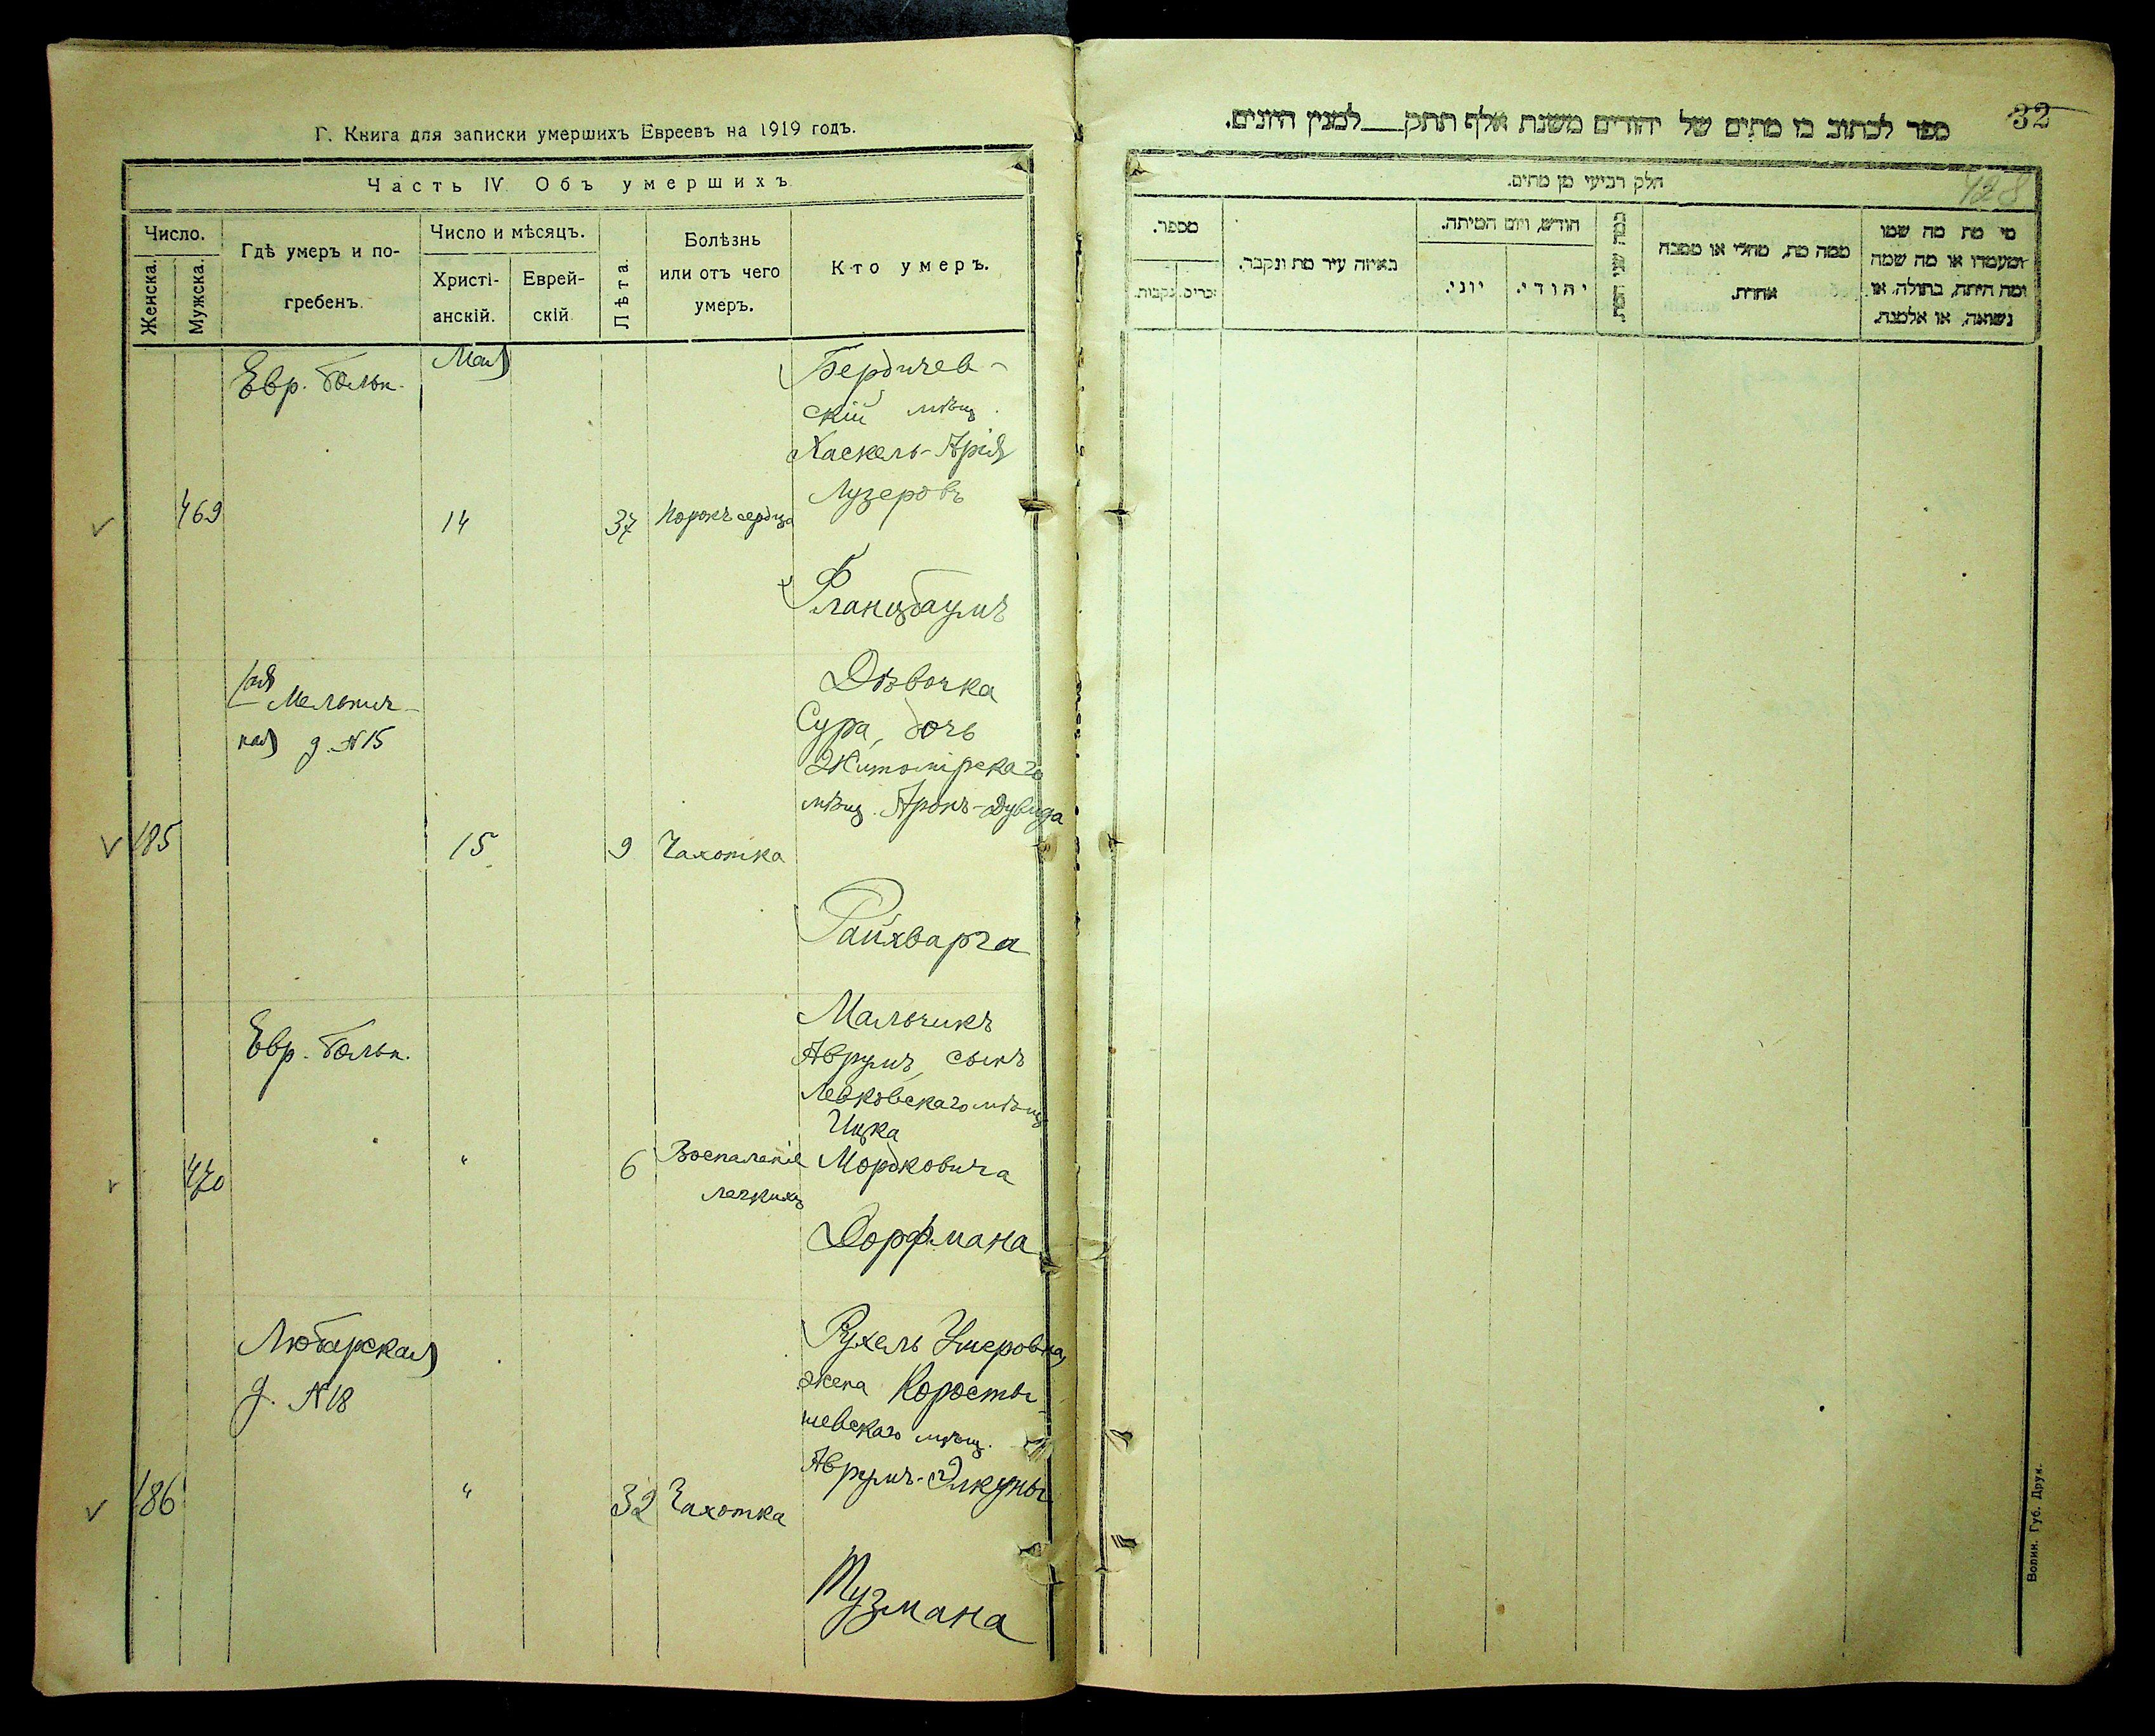 Г. Книга для записки умершихъ Евреевъ на 1919 годъ.
Часть IV. Объ умершихъ
Число.
Женска.
Мужска.
Гдѣ умеръ и по-
гребенъ.
Число и мѣсяцъ.
Христі-
анскій.
Еврей-
скій
Лѣта.
Болѣзнь
или отъ чего
умеръ.
Кто умеръ.
Евр. больн.
Мая
Бердичев-
скій мѣщ.
Хаскель-Арія
Лузеровъ
469
14
37
Порокъ сердца
Фланцбаумъ
Мельнич-
ная д. №15
Дѣвочка
Сура, дочь
Житомірскаго
мѣщ. Аронъ-Дувида
185
15
9
Чахотка
Райхварга
Евр. больн.
Мальчикъ
Аврумъ, сынъ
Левковскаго мѣщ.
Ицка
470
"
6
Воспаленіе
легкихъ
Мордковича
Дорфмана
Любарская
д. №18
Рухель Умеровна,
жена Коросты-
шевскаго мѣщ.
Аврумъ-Элкуны
186
"
32
Чахотка
Тузмана
32
ספר לכתוב בו מתים של יהודים משנת אלף תתק למנין היונים.
128
חלק רביעי מן מתים.
מי מת מה שמו
ומעמדו או מה שמה
ומה היתה, בתולה, או
נשואה, או אלמנה.
ממה מת, מחלי או מסבה
אחרת.
כמה שני המת
חודש, ויום המיתה.
יהודי.
יוני.
באיזה עיר מת ונקבר.
מספר.
זכרים.
נקבות.
Волин. Губ. Друк.